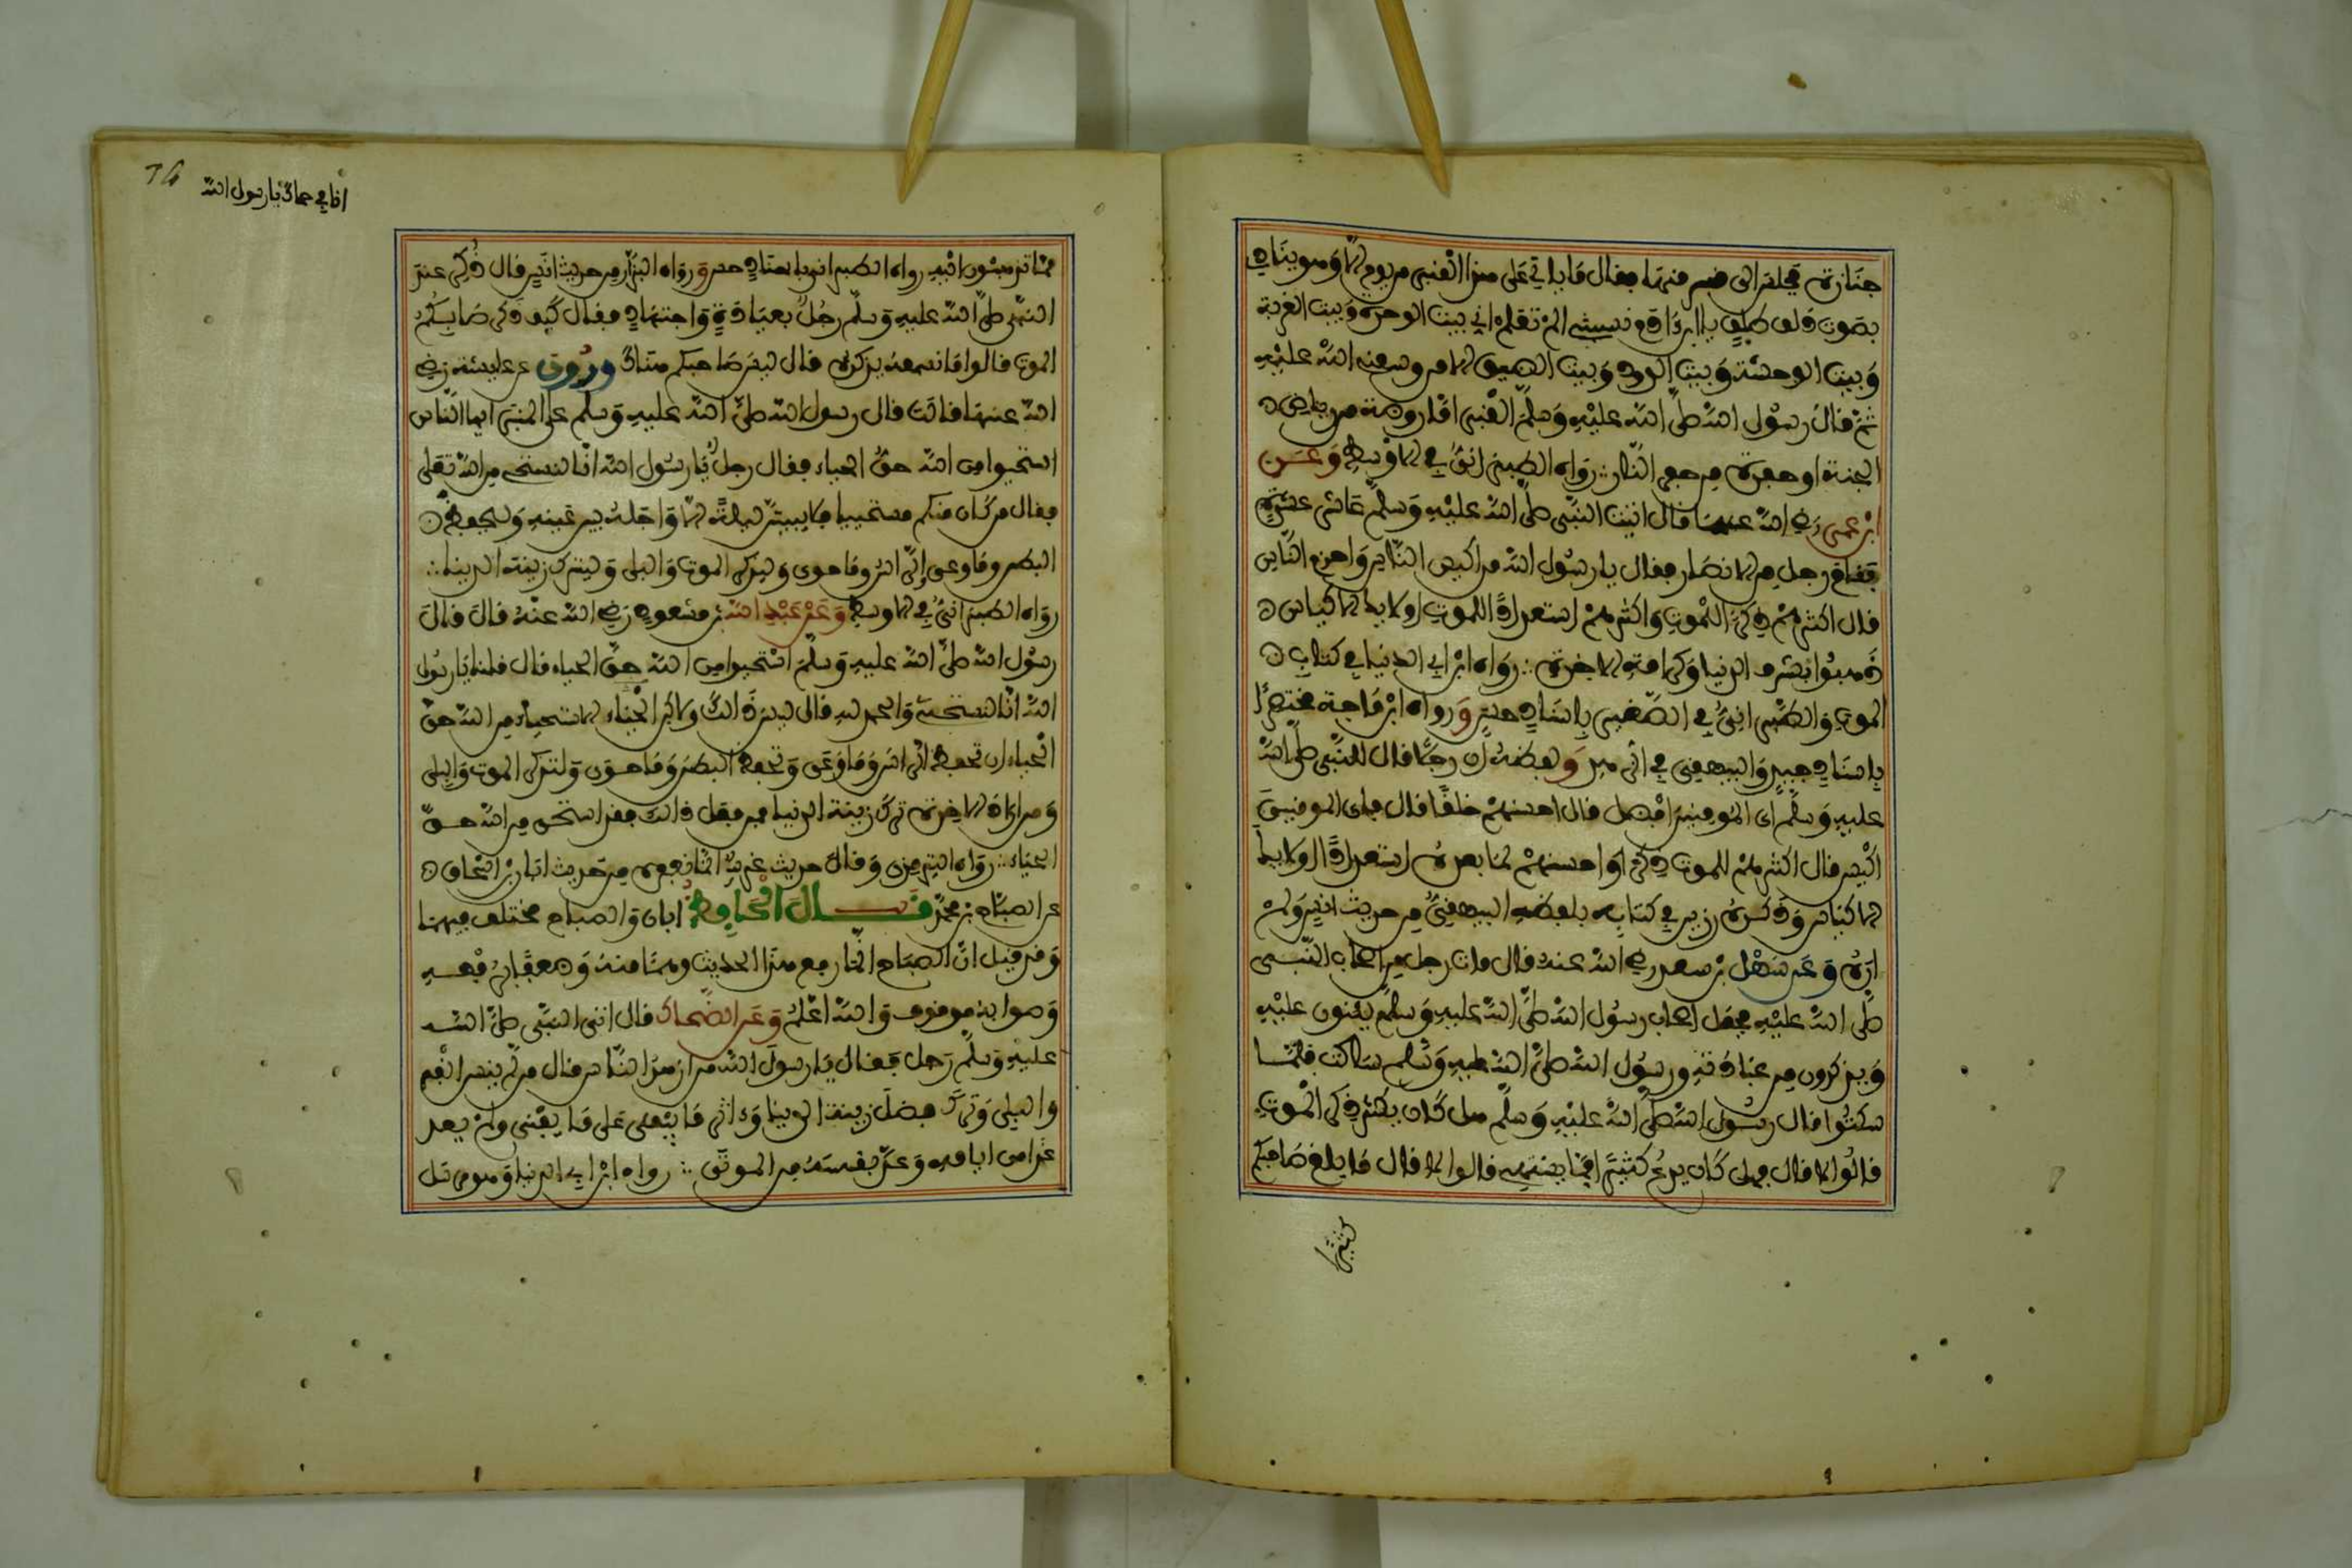 جنازة فجلس الى قبر منها فقال ما ياتي على هذا القبر من يوم الا وهو ينادي
بصوت ذلق طلق يا ابن ادم نسيتني الم تعلم اني بيت الوحدة وبيت الغربة
وبيت الوحشة وبيت الدود وبيت الضيق الا من وسعني الله عليه
ثم قال رسول الله صلى الله عليه وسلم القبر اما روضة من رياض
الجنة او حفرة من حفر النار رواه الطبراني في الاوسط وعن
ابن عمر رضي الله عنهما قال اتيت النبي صلى الله عليه وسلم عاشر عشرة
فقام رجل من الانصار فقال يا رسول الله من اكيس الناس واحزم الناس
قال اكثرهم ذكرا للموت واكثرهم استعدادا للموت اولايك الاكياس
ذهبوا بشرف الدنيا وكرامة الاخرة رواه ابن ابي الدنيا في كتاب
الموت والطبراني في الصغير باسناد حسن ورواه ابن ماجة مختصرا
باسناد جيد والبيهقي في الزهد ولفظه ان رجلا قال للنبي صلى الله
عليه وسلم اي المومنين افضل قال احسنهم خلقا قال فاي المومنين
اكيس قال اكثرهم للموت ذكرا واحسنهم لما بعده استعدادا اولايك
الاكياس وذكره رزين في كتابه بلفظ البيهقي من حديث انس ولم
اره وعن سهل بن سعد رضي الله عنه قال مات رجل من اصحاب النبي
صلى الله عليه فجعل اصحاب رسول الله صلى الله عليه وسلم يثنون عليه
ويذكرون من عبادته ورسول الله صلى الله عليه وسلم ساكت فلما
سكتوا قال رسول الله صلى الله عليه وسلم هل كان يكثر ذكر الموت
قالوا لا قال فهل كان يدع كثيرا مما يشتهي قالوا لا قال ما بلغ صاحبكم
كثيرا
انا في حماك يا رسول الله
مما تذهبون اليه رواه الطبراني باسناد حسن ورواه البزار من حديث انس قال ذكر عند
النبي صلى الله عليه وسلم رجل بعبادة واجتهاد فقال كيف ذكر صاحبكم
الموت قالوا ما نسمعه يذكره قال ليس صاحبكم هناك وروي عن عايشة رضي
الله عنها قالت قال رسول الله صلى الله عليه وسلم على المنبر ايها الناس
استحيوا من الله حق الحياء فقال رجل يا رسول الله انا لنستحي من الله تعلى
فقال من كان منكم مستحييا فلا يبيتن ليلة الا واجله بين عينيه وليحفظ
البطن وما وعى والراس وما حوى وليذكر الموت والبلى وليترك زينة الدنيا
رواه الطبراني في الاوسط وعن عبد الله بن مسعود رضي الله عنه قال قال
رسول الله صلى الله عليه وسلم استحيوا من الله حق الحياء قال قلنا يا رسول
الله انا لنستحيي والحمد لله قال ليس ذالك ولاكن الحياء الاستحياء من الله حق
الحياء ان تحفظ الراس وما وعى وتحفظ البطن وما حوى ولتذكر الموت والبلى
ومن اراد الاخرة ترك زينة الدنيا فمن فعل ذالك فقد استحى من الله حق
الحياء رواه الترمذي وقال حديث غريب انما نعرفه من حديث ابان بن اسحاق
عن الصباح بن محمد قال الحافظ ابان والصباح مختلف فيهما
وقد قيل ان الصباح انما رفع هذا الحديث وهما منه وضعف برفعه
وصوابه موقوف والله اعلم وعن الضحاك قال اتى النبي صلى الله
عليه وسلم رجل فقال يا رسول الله من ازهد الناس قال من لم ينس القبر
والبلى وترك فضل زينة الدنيا واثر ما يبقى على ما يفنى ولم يعد
غدا من ايامه وعد نفسه من الموتى رواه ابن ابي الدنيا وهو مرسل